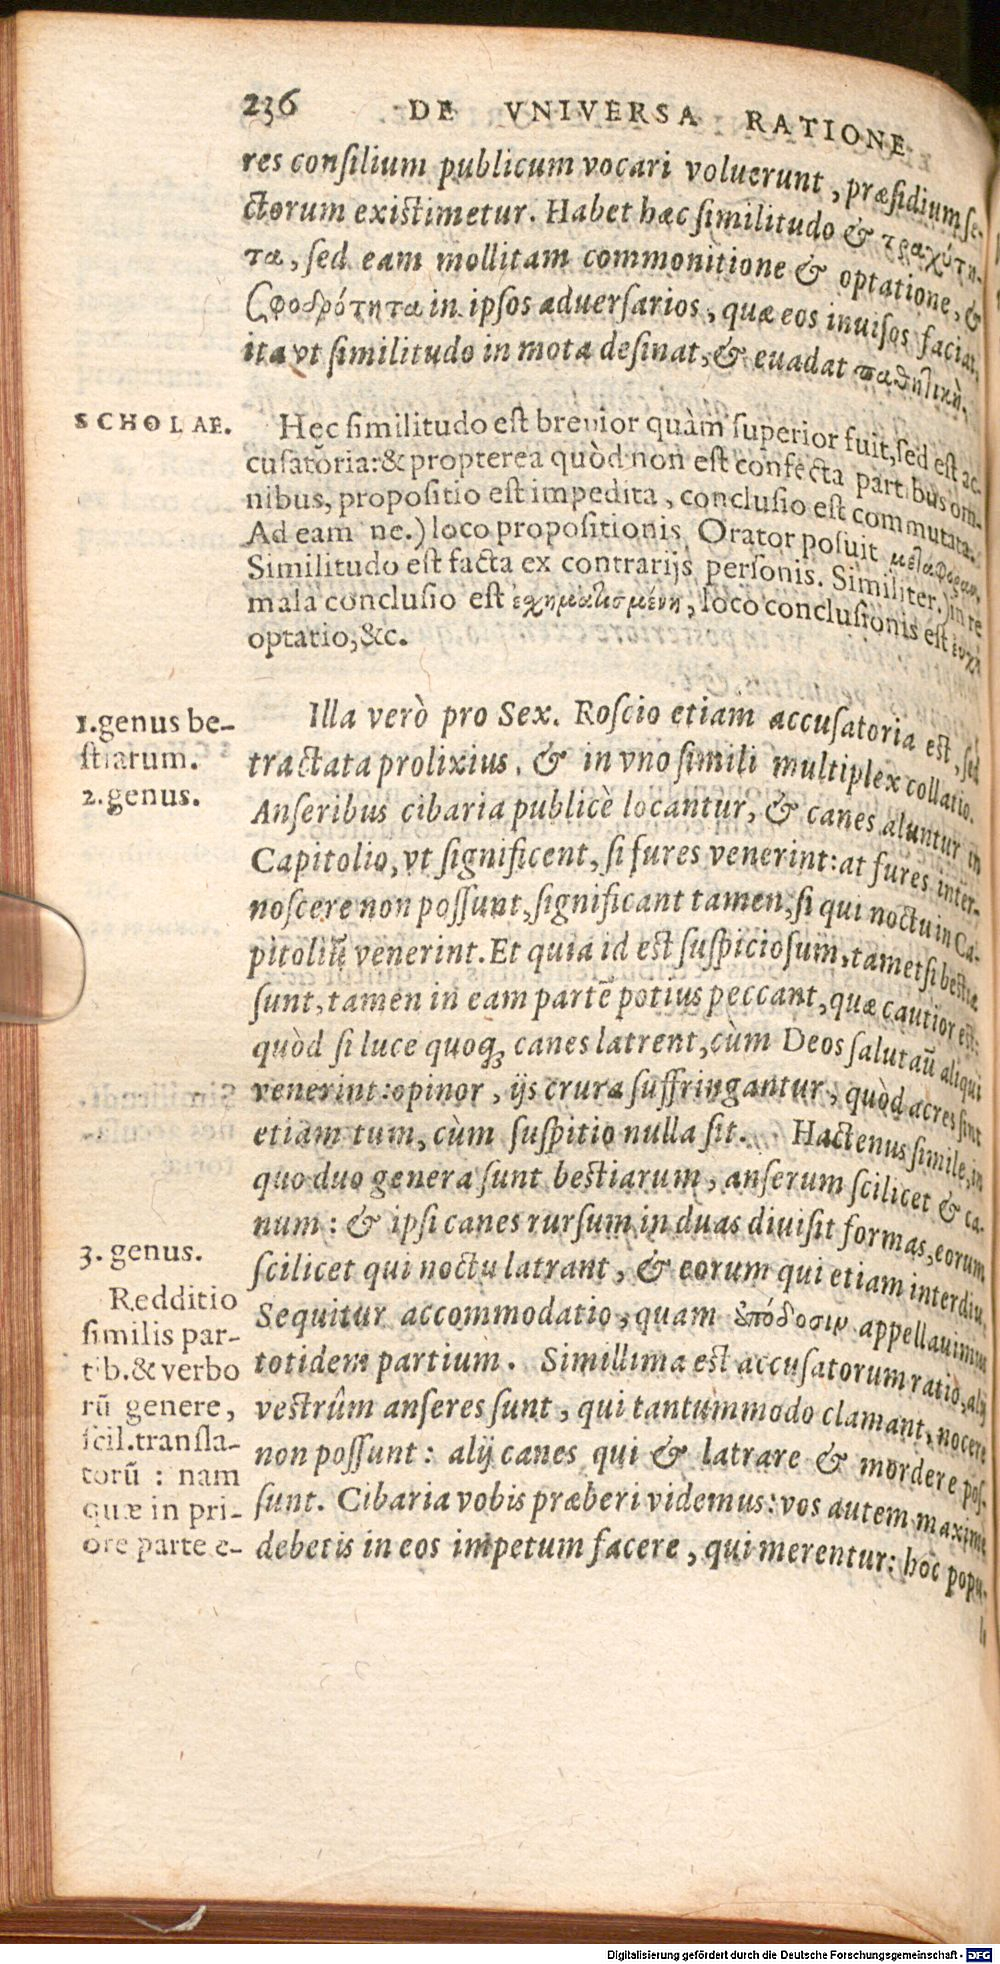 236 DE VNIVERSA RATIONE
res consilium publicum vocari voluerunt, præsidium se-
ctorum existimetur. Habet hæc similitudo & τραχύτη-
τα, sed eam mollitam commonitione & optatione, &
σφοδρότητα in ipsos aduersarios, quæ eos inuisos faciat,
ita vt similitudo in mota desinat, & euadat παθητικὴ.
SCHOLAE.
Hęc similitudo est breuior quàm superior fuit, sed est ac-
cusatoria: & propterea quòd non est confecta partibus om-
nibus, propositio est impedita, conclusio est commutata.
Ad eam ne.) loco propositionis Orator posuit μεταφορὰν.
Similitudo est facta ex contrarijs personis. Similiter.) in re
mala conclusio est ἐσχηματισμένη, loco conclusionis est εὐχὴ
optatio, &c.
1. genus be-
stiarum.
2. genus.
Illa verò pro Sex. Roscio etiam accusatoria est, sed
tractata prolixius, & in vno simili multiplex collatio.
Anseribus cibaria publicè locantur, & canes aluntur in
Capitolio, vt significent, si fures venerint: at fures inter-
noscere non possunt, significant tamen, si qui noctu in Ca-
pitoliũ venerint. Et quia id est suspiciosum, tametsi bestiæ
sunt, tamen in eam partẽ potius peccant, quæ cautior est:
quòd si luce quoqꝫ canes latrent, cùm Deos salutatũ aliqui
venerint: opinor, ijs crura suffringantur, quòd acres sint
etiam tum, cùm suspitio nulla sit. Hactenus simile, in
quo duo genera sunt bestiarum, anserum scilicet & ca-
num: & ipsi canes rursum in duas diuisit formas, eorum
scilicet qui noctu latrant, & eorum qui etiam interdiu.
Sequitur accommodatio, quam ἀπόδοσιν appellauimus
totidem partium. Simillima est accusatorum ratio, alij
vestrûm anseres sunt, qui tantummodo clamant, nocere
non possunt: alij canes qui & latrare & mordere pos-
sunt. Cibaria vobis præberi videmus: vos autem maximè
debetis in eos impetum facere, qui merentur: hoc popu-
3. genus.
Redditio
similis par-
tib. & verbo
rũ genere,
scil. transla-
torũ : nam
quæ in pri-
ore parte e-